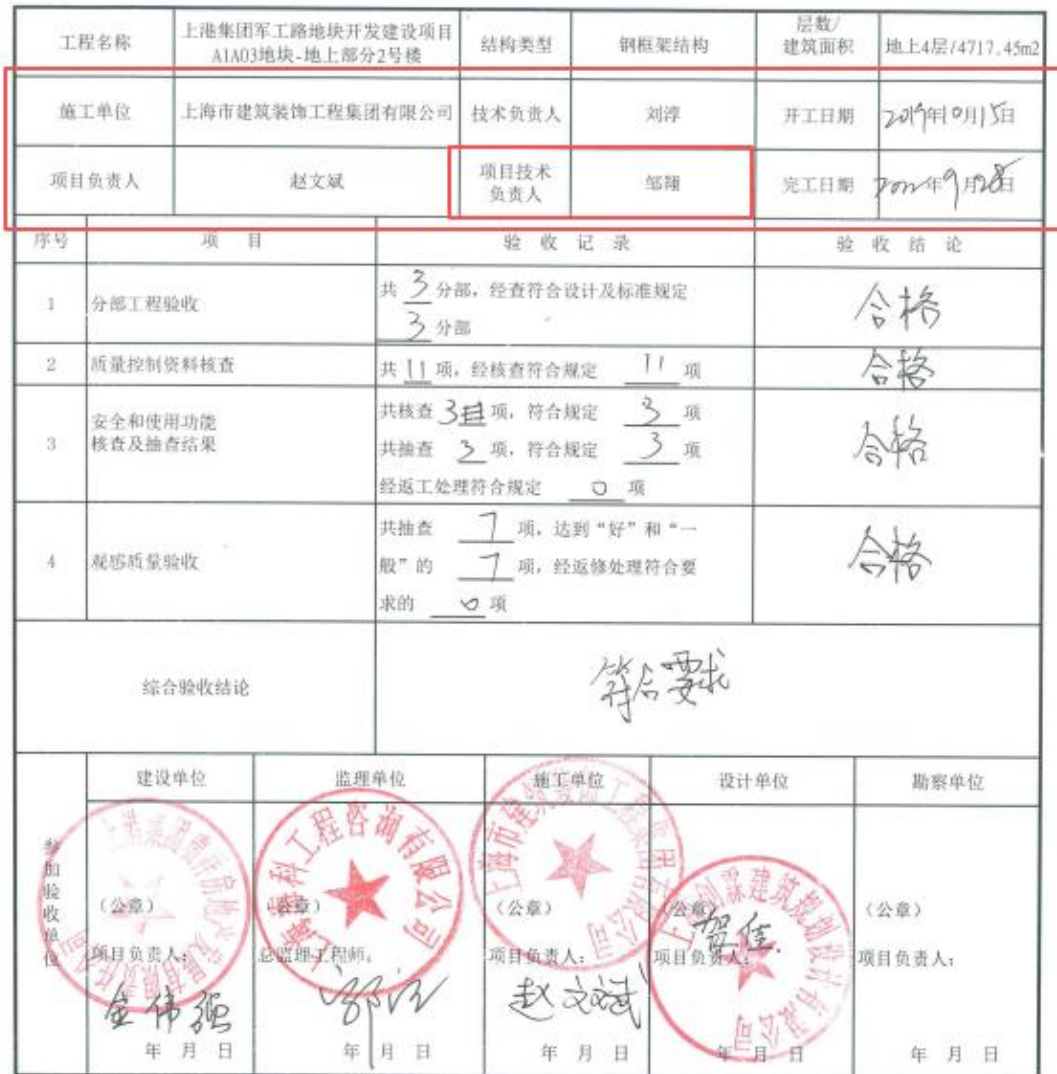 工程名称
上港集团军工路地块开发建设项目
A1A03地块-地上部分2号楼
结构类型
钢框架结构
层数/
建筑面积
地上4层/4717.45m2
施工单位
上海市建筑装饰工程集团有限公司
技术负责人
刘淳
开工日期
2019年10月15日
项目负责人
赵文斌
项目技术
负责人
邹翔
完工日期
2022年9月28日
序号
项 目
验 收 记 录
验 收 结 论
1
分部工程验收
共 3 分部，经查符合设计及标准规定
3 分部
合格
2
质量控制资料核查
共 11 项，经核查符合规定 11 项
合格
3
安全和使用功能
核查及抽查结果
共核查 3 项，符合规定 3 项
共抽查 3 项，符合规定 3 项
经返工处理符合规定 0 项
合格
4
观感质量验收
共抽查 7 项，达到“好”和“一
般”的 7 项，经返修处理符合要
求的 0 项
合格
综合验收结论
符合要求
参加验收单位
建设单位
监理单位
施工单位
设计单位
勘察单位
（公章）
（公章）
（公章）
（公章）
（公章）
项目负责人：
总监理工程师：
项目负责人：
项目负责人：
项目负责人：
赵文斌
贺佳
年 月 日
年 月 日
年 月 日
年 月 日
年 月 日
上海市建筑装饰工程集团有限公司